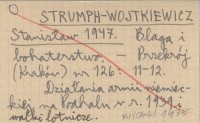 STRUMPH-WOJTKIEWICZ
Stanisław 1947. Blaga i
bohaterstwo. – Przekrój
(Kraków) nr 126: 11-12.
Działania armii niemiec-
kiej na Podhalu w r. 1939 i
walki lotnicze.